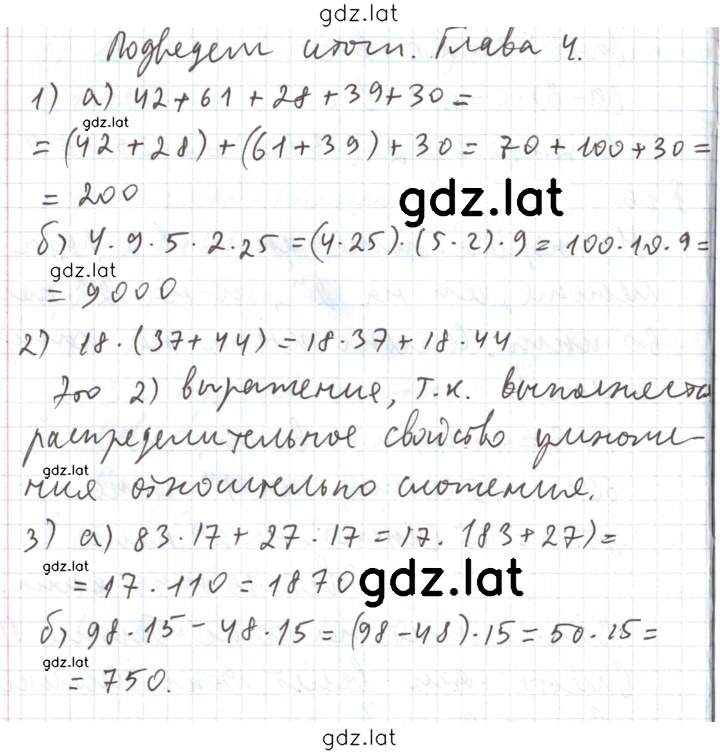 gdz.lat
Подведем итоги. Глава 4.
1) а) 42+61+28+39+30=
gdz.lat
=(42+28)+(61+39)+30=70+100+30=
=200
gdz.lat
б) 4·9·5·2·25=(4·25)·(5·2)·9=100·10·9=
gdz.lat
=9000
2) 18·(37+44)=18·37+18·44
Это 2) выражение, т.к. выполняется
распределительное свойство умноже-
gdz.lat
ния относительно сложения.
3) а) 83·17+27·17=17·(83+27)=
gdz.lat
=17·110=1870
gdz.lat
б) 98·15-48·15=(98-48)·15=50·15=
gdz.lat
=750.
gdz.lat